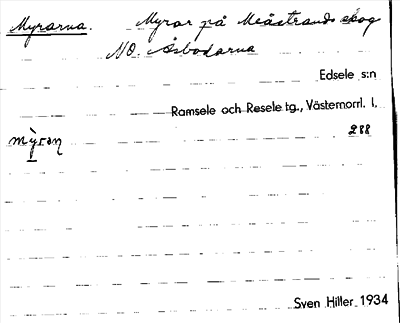 Myrarna. Myrar på Meåstrands skog
NO. Åsbodarna
Edsele s:n
Ramsele och Resele tg., Västernorrl. l.
288
Sven Hiller 1934